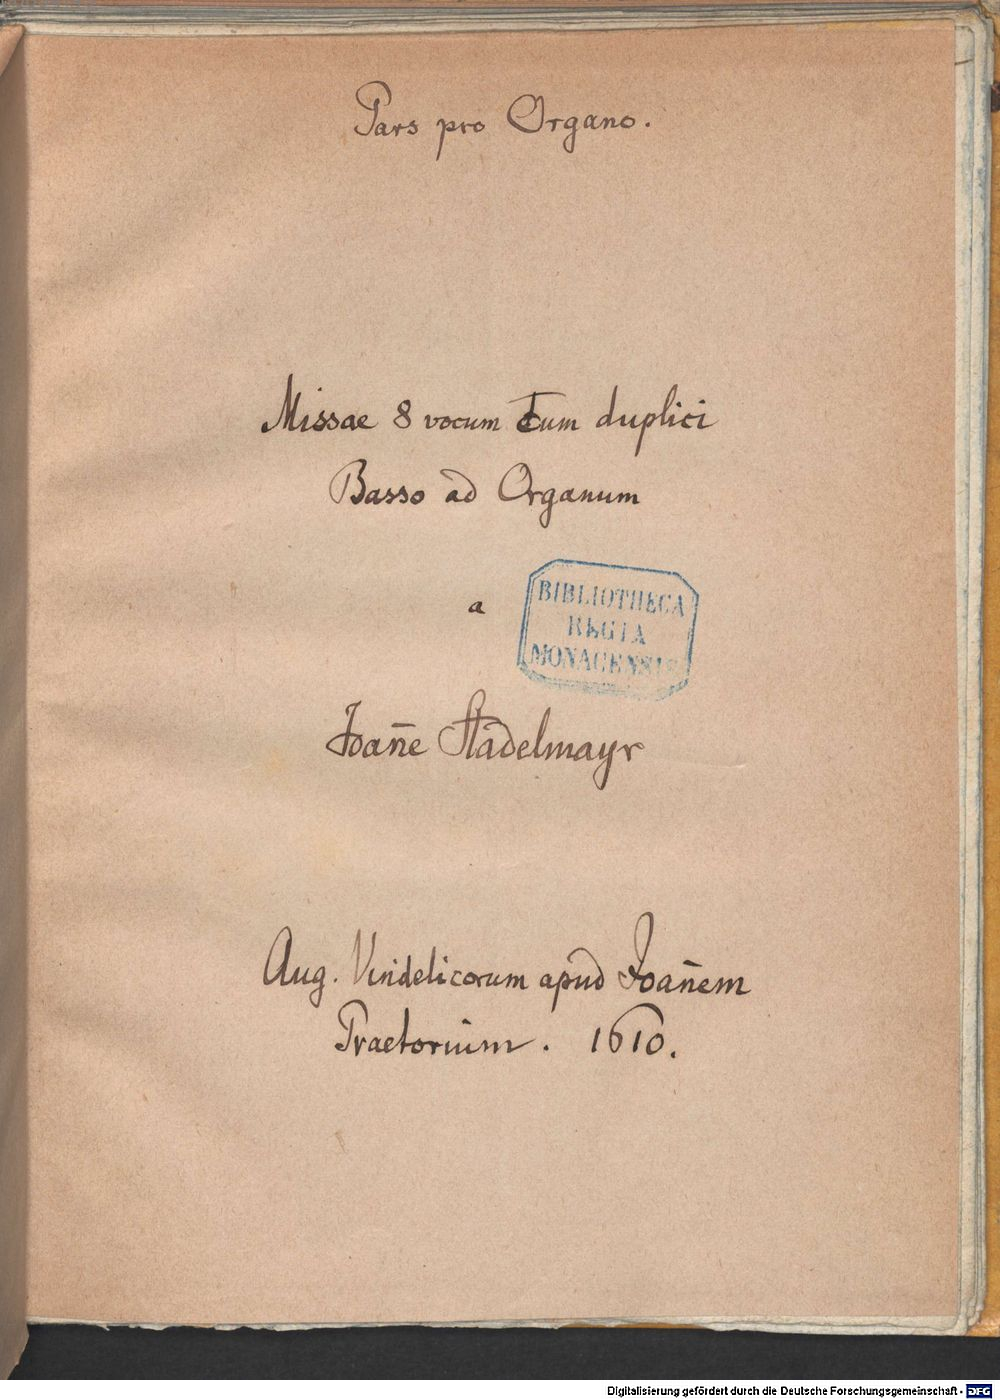 Pars pro Organo.
Missae 8 vocum cum duplici
Basso ad Organum
a
BIBLIOTHECA
REGIA
MONACENSIS
Joan̄e Stadelmayr
Aug. Vindelicorum apud Joan̄em
Praetorium. 1610.
Digitalisierung gefördert durch die Deutsche Forschungsgemeinschaft - DFG